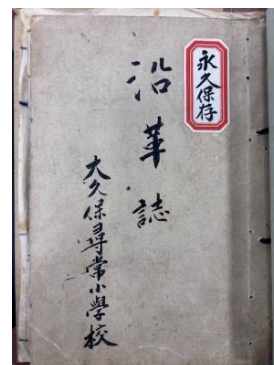 永久保存
沿革誌
大久保尋常小學校